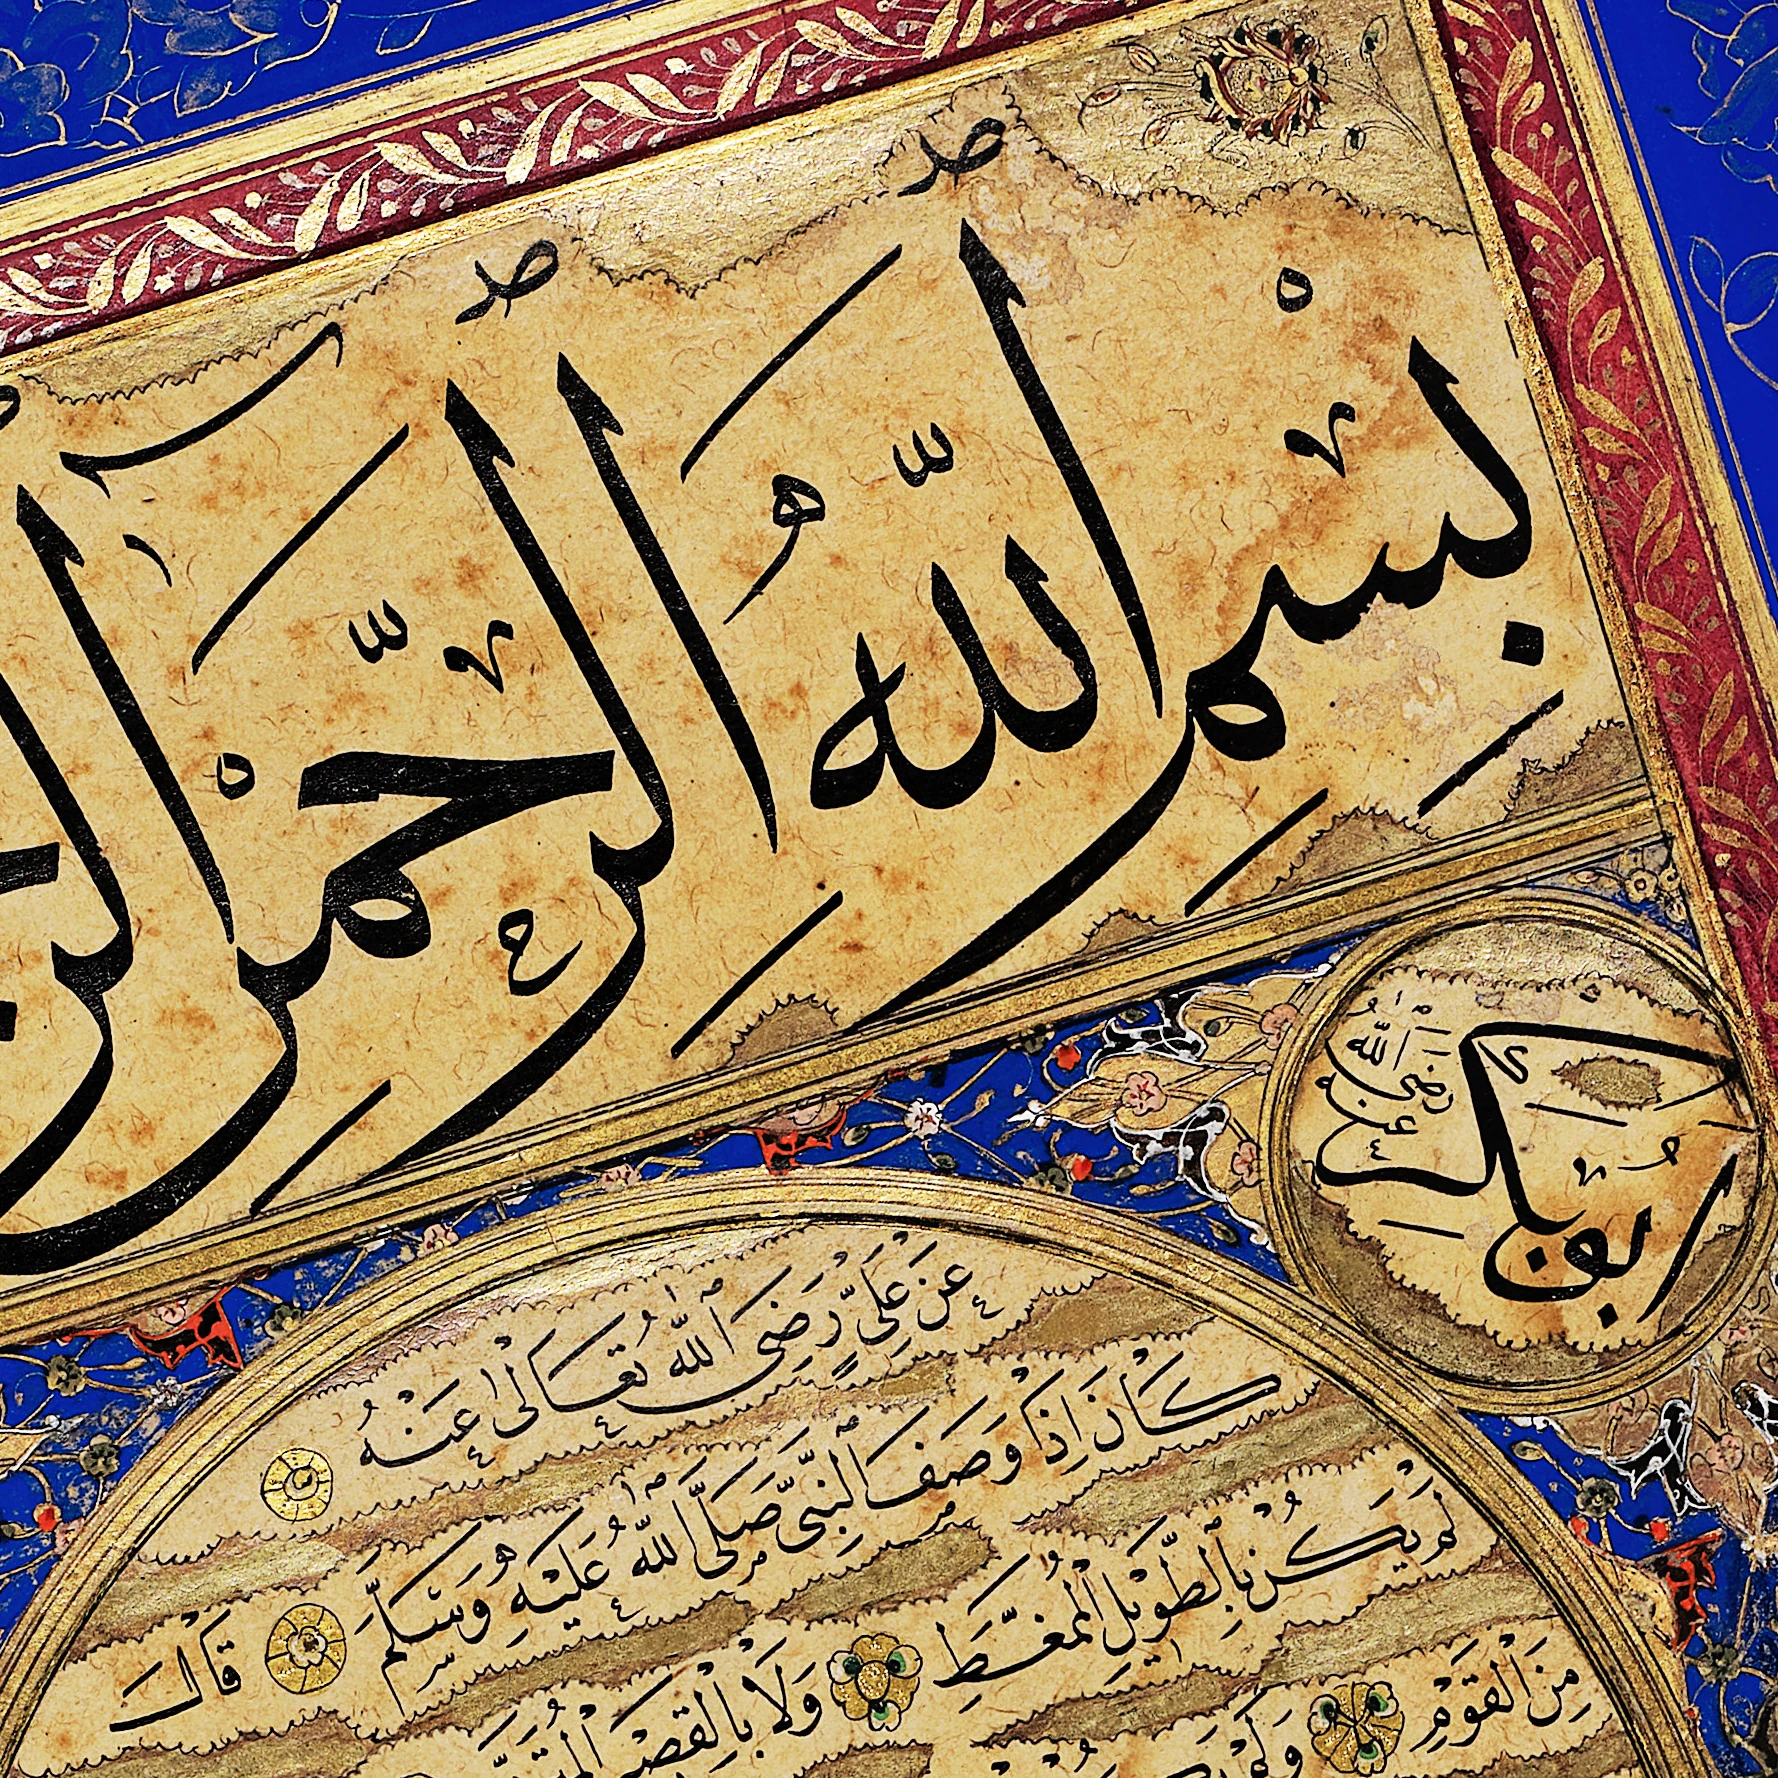 بِسْمِ اللّٰهِ الرَّحْمٰنِ
ابو بكر رضى الله عنه
عَنْ عَلِىٍّ رَضِىَ اللّٰهُ تَعَالٰى عَنْهُ
كَانَ إِذَا وَصَفَ النَّبِىَّ صَلَّى اللّٰهُ عَلَيْهِ وَسَلَّمَ قَالَ
لَمْ يَكُنْ بِالطَّوِيْلِ الْمُمَّغِطِ وَلَا بِالْقَصِيْرِ
مِنَ الْقَوْمِ وَلَمْ